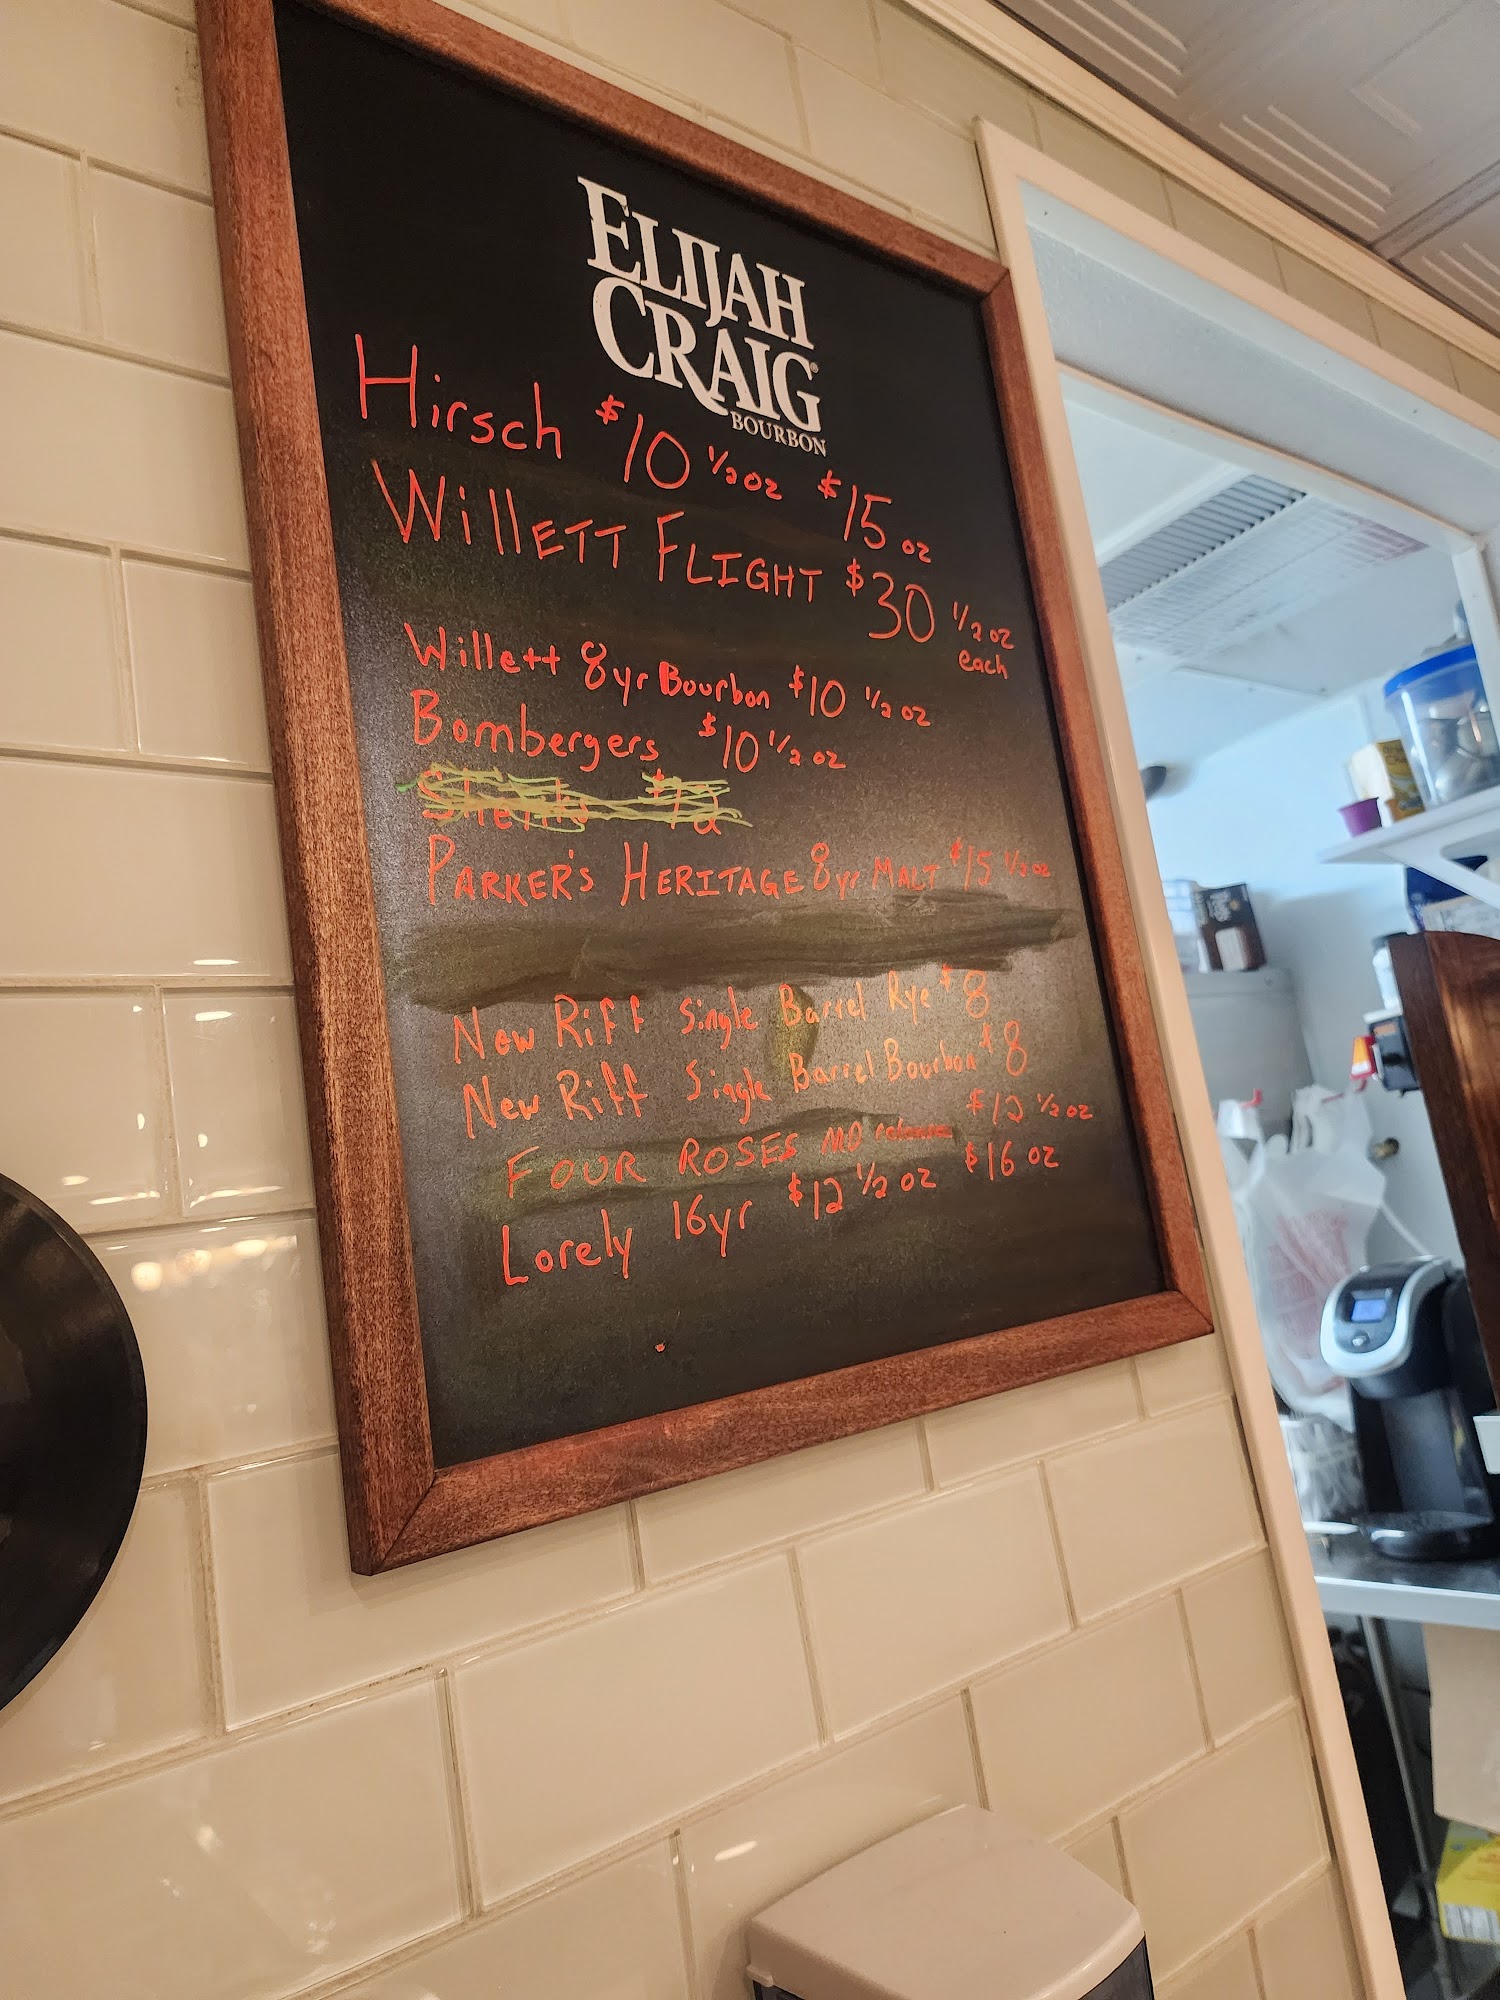 ELIJAH
CRAIG
BOURBON
Hirsch $10 1/2 oz $15 oz
WillETT FLIGHT $30 1/2 oz
each
Willett 8yr Bourbon $10 1/2 oz
Bombergers $10 1/2 oz
PARKER'S HERITAGE 8yr MALT $15 1/2 oz
New Riff Single Barrel Rye $8
New Riff Single Barrel Bourbon $8
FOUR ROSES $12 1/2 oz
Lorely 16yr $12 1/2 oz $16 oz